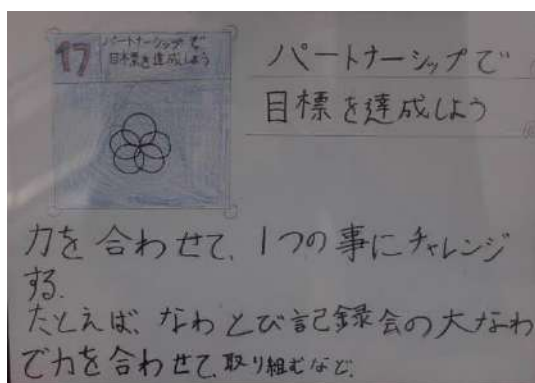 17
パートナーシップで
目標を達成しよう
パートナーシップで
目標を達成しよう
力を合わせて、1つの事にチャレンジ
する.
たとえば、なわとび記録会の大なわ
で力を合わせて、取り組むなど.